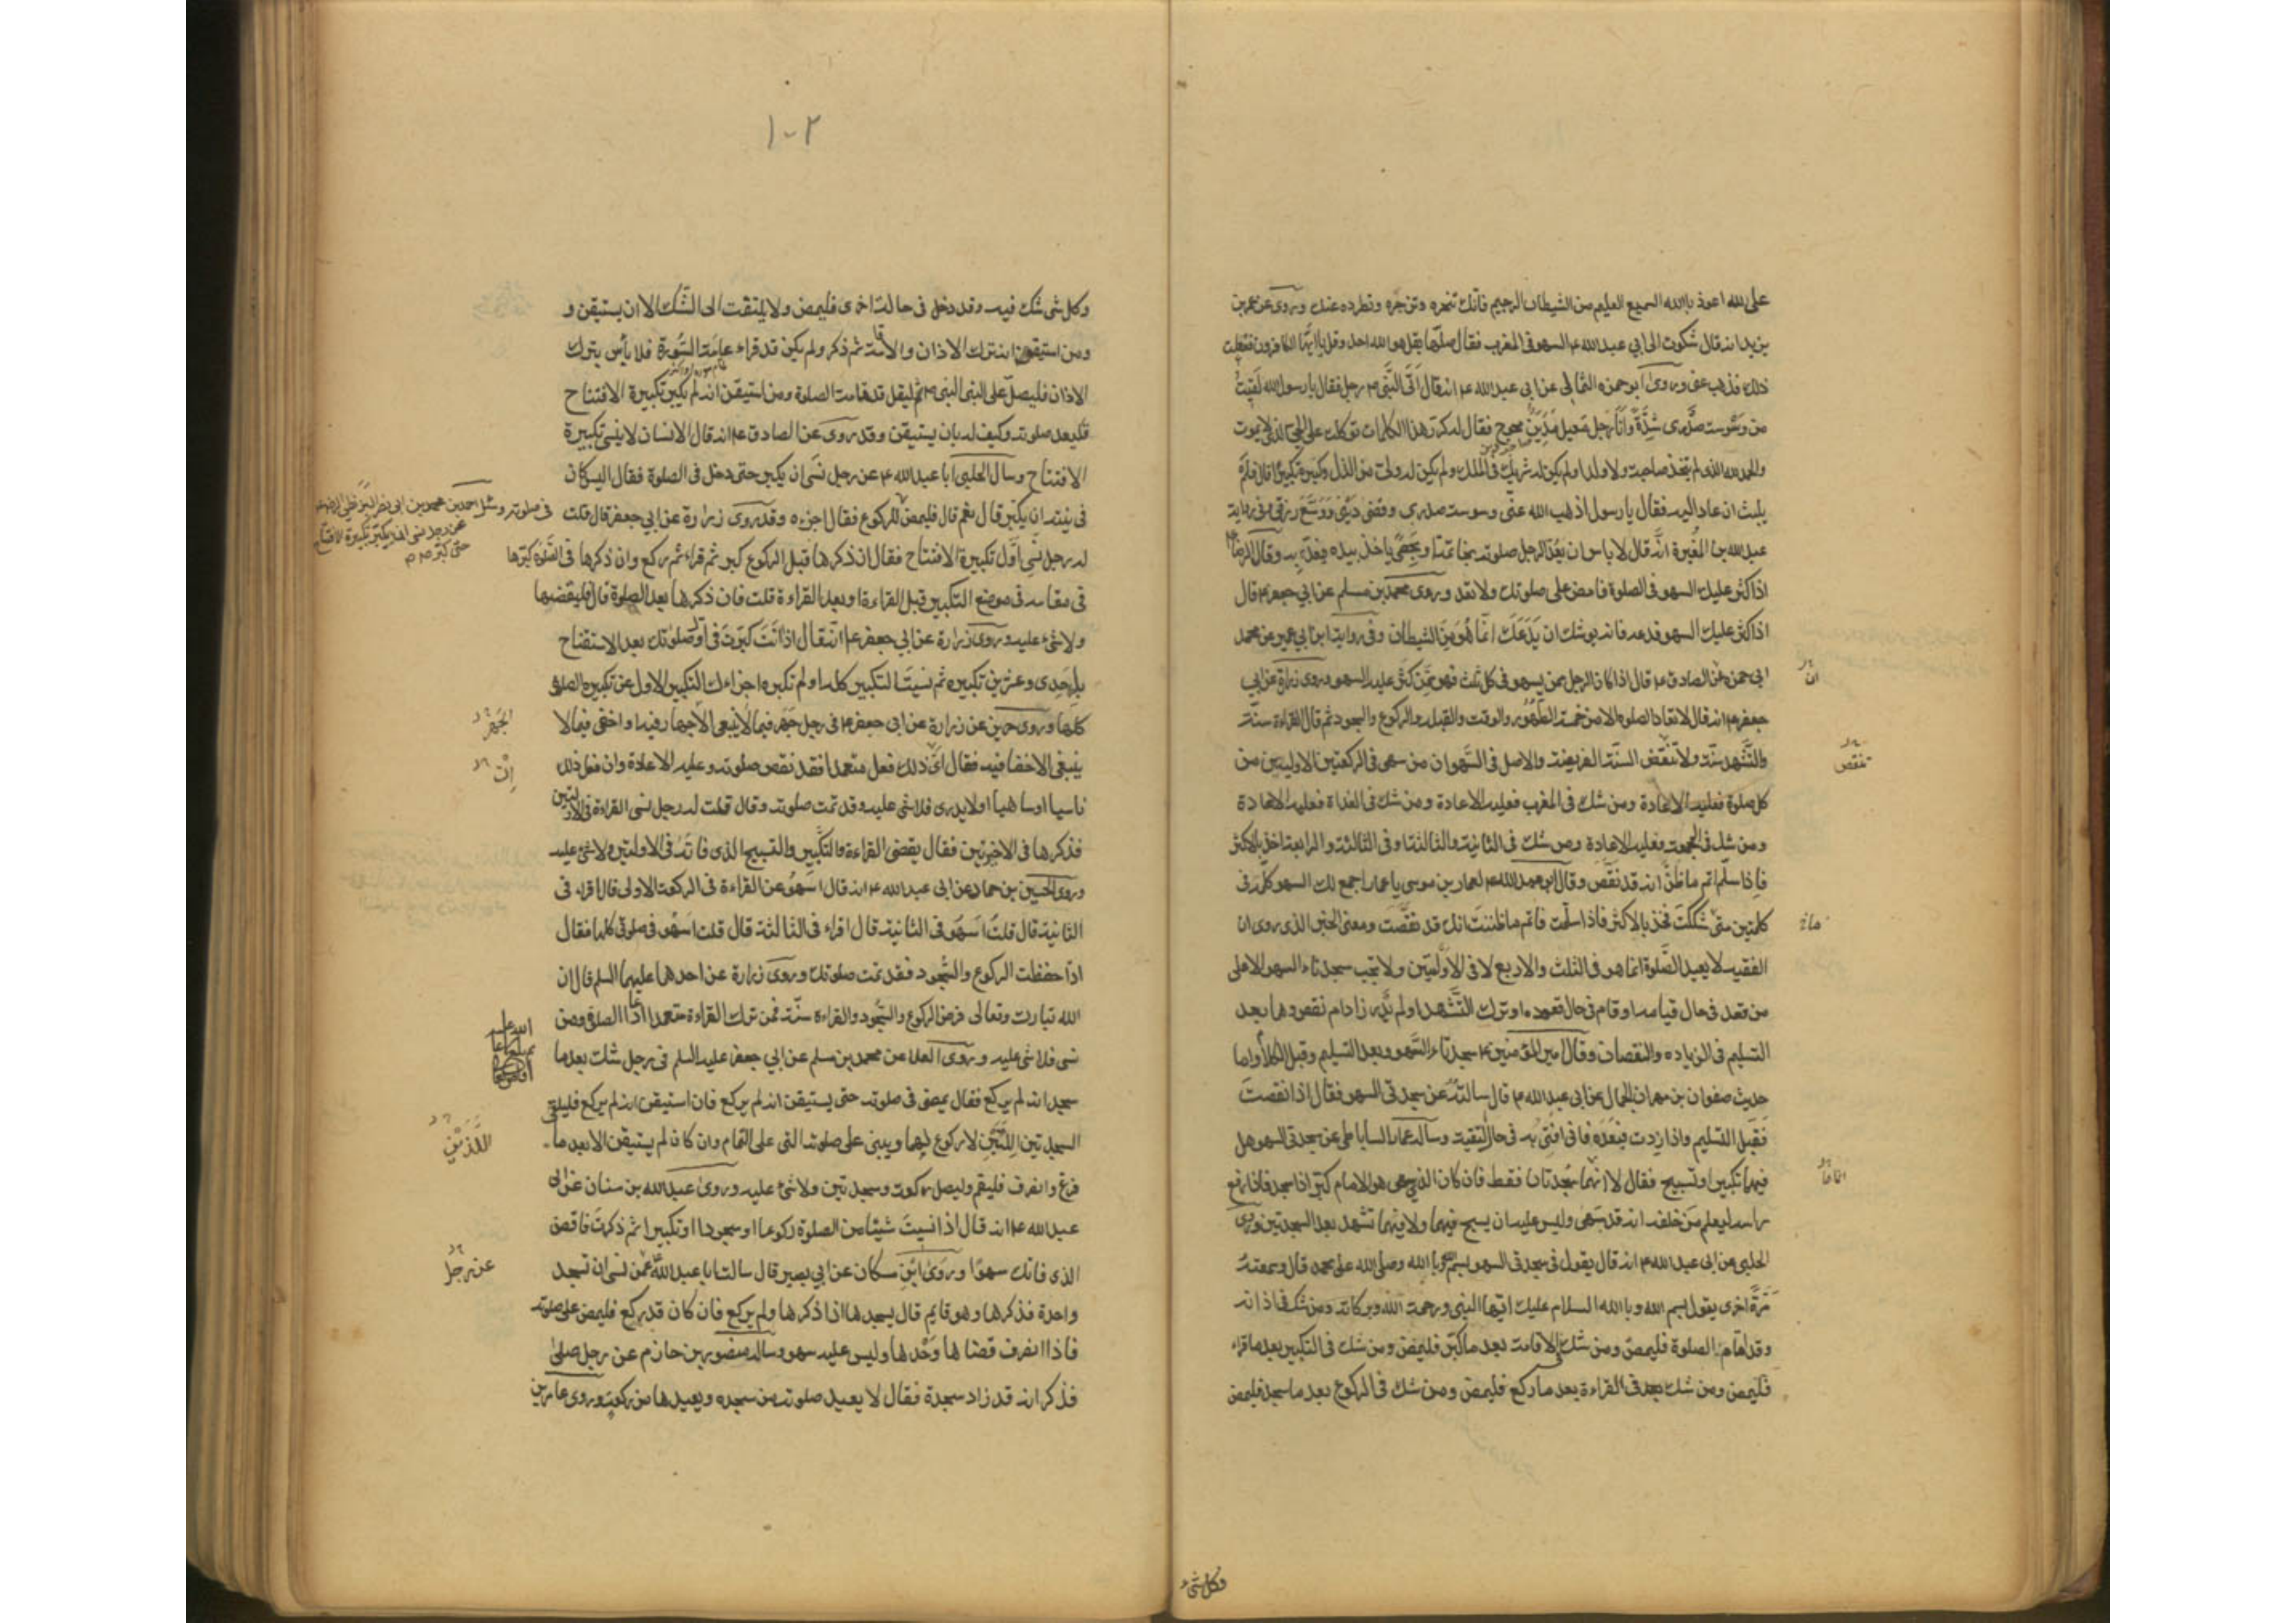 على الله اعوذ بالله السميع العليم من الشيطان الرجيم فانك تنحره وتزجره وتطرده عنك وروى عن عمر بن
يزيد انه قال شكوت الى ابي عبد الله ع السهو في المغرب فقال صلها بقل هو الله احد وقل يا ايها الكافرون ففعلت
ذلك فذهب عني وروى ابو حمزه الثمالي عن ابي عبد الله ع انه قال اتى النبي ص رجل فقال يا رسول الله لقيت
من وسوسة صدرى شدة وانا رجل معيل مدين محوج فقال له كرر هذا الكلمات توكلت على الحي الذى لا يموت
والحمد لله الذى لم يتخذ صاحبة ولا ولدا ولم يكن له شريك في الملك ولم يكن له ولى من الذل وكبره تكبيرا قال فلم
يلبث ان عاد اليه فقال يا رسول اذهب الله عنى وسوسة صدرى وقضى دينى ووسع رزقى وفى رواية
عبد الله بن المغيرة انه قال لا باس ان يعد الرجل صلوته بخاتمه او بحصى ياخذ بيده فيعد به وقال الرضا ع
اذا كثر عليك السهو في الصلوة فامض على صلوتك ولا تعد وروى محمد بن مسلم عن ابي جعفر ع قال
اذا كثر عليك السهو فدعه فانه يوشك ان يدعك انما هو من الشيطان وفى رواية ابن ابي عمير عن محمد
ابى حمزه عن الصادق ع قال اذا كان الرجل ممن يسهو في كل ثلث فهو ممن كثر عليه السهو وروى زرارة عن ابي
ان
جعفر ع انه قال لا تعاد الصلوه الا من خمسة الطهور والوقت والقبله والركوع والسجود ثم قال القراءة سنة
والتشهد سنة ولا تنقض السنة الفريضة والاصل في السهو ان من سهى في الركعتين الاوليين من
تنقص
كل صلوة فعليه الاعادة ومن شك في المغرب فعليه الاعادة ومن شك فى الغداة فعليه الاعادة
ومن شك في الجمعة فعليه الاعادة ومن شك فى الثانية والثالثة او فى الثالثة والرابعة اخذ بالاكثر
فاذا سلم اتم ما ظن انه قد نقص وقال ابو عبد الله ع لعمار بن موسى يا عمار اجمع لك السهو كله فى
كلمتين متى شككت فخذ بالاكثر فاذا سلمت فاتم ما ظننت انك قد نقصت ومعنى الخبر الذى روى ان
الفقيه لا يعيد الصلوة انما هو فى الثلث والاربع لا فى الاوليين ولا يجب سجدتا السهو الا على
من قعد فى حال قيامه او قام فى حال قعوده او ترك التشهد او لم يدر زاد ام نقص وهما بعد
التسليم فى الزياده والنقصان وقال امير المؤمنين ع سجدتا السهو بعد التسليم وقبل الكلام واما
حديث صفوان بن مهران الجمال عن ابى عبد الله ع قال سالته عن سجدتى السهو فقال اذا نقصت
فقبل التسليم واذا زدت فبعده فانى افتى به فى حال التقية وساله عمار الساباطى عن سجدتى السهو هل
فيهما تكبير او تسبيح فقال لا انهما سجدتان فقط فان كان الذى سهى هو الامام كبر اذا سجد فاذا رفع
راسه ليعلم من خلفه انه قد سهى وليس عليه ان يسبح فيهما ولا فيهما تشهد بعد السجدتين وروى
الحلبى عن ابى عبد الله ع انه قال يقول فى سجدتى السهو بسم الله وبالله وصلى الله على محمد قال وسمعته
مرة اخرى يقول بسم الله وبالله السلام عليك ايها النبى ورحمة الله وبركاته ومن شك فى اذانه
وقد اقام الصلوة فليمض ومن شك فى الاقامة بعد ما كبر فليمض ومن شك فى التكبير بعد ما قراء
فليمض ومن شك فى القراءة بعد ما ركع فليمض ومن شك فى الركوع بعد ما سجد فليمض
وكل شىء
١٠٢
وكل شى شك فيه وقد دخل فى حالة اخرى فليمض ولا يلتفت الى الشك الا ان يستيقن و
ومن استيقن انه ترك الاذان والاقامة ثم ذكر ولم يكن قد قراء عامة السورة فلا بأس بترك
الاذان فليصل على النبى النبى ص ثم ليقل قد قامت الصلوة ومن استيقن انه لم يكبر تكبيرة الافتتاح
فليعد صلوته وكيف له بان يستيقن وقد روى عن الصادق ع انه قال الانسان لا ينسى تكبيرة
الافتتاح وسال الحلبى ابا عبد الله ع عن رجل نسى ان يكبر حتى دخل فى الصلوة فقال اليس كان
فى نيته ان يكبر قال نعم قال فليمض للركوع فقال اجزءه وقد روى زرارة عن ابى جعفر قال قلت
فى صلوته وسئل احمد بن محمد بن ابى نصر البزنطى الرضا ع
عن رجل نسى ان يكبر تكبيرة الافتتاح
حتى كبر
له رجل نسى اول تكبيرة الافتتاح فقال ان ذكرها قبل الركوع كبر ثم قراء ثم ركع وان ذكرها فى الصلوة كبرها
فى مقامه فى موضع التكبير قبل القراءة او بعد القراءة قلت فان ذكرها بعد الصلوة قال فليقضها
ولا شىء عليه وروى زرارة عن ابى جعفر ع انه قال اذا انت كبرت فى اول صلوتك بعد الاستفتاح
باحدى وعشرين تكبيره ثم نسيت التكبير كله او لم تكبره اجزاءك التكبير الاول عن تكبيره الصلوة
كلها وروى حريز عن زرارة عن ابى جعفر ع فى رجل جهر فيما لا ينبغى الاجهار فيه او اخفى فيما لا
الجهر
ينبغى الاخفا فيه فقال اى ذلك فعل متعمدا فقد نقص صلوته وعليه الاعادة وان فعل ذلك
ناسيا او ساهيا او لا يدرى فلا شى عليه وقد تمت صلوته وقال قلت له رجل نسى القراءة فى الاوليين
فذكرها فى الاخيرتين فقال يقضى القراءة والتكبير والتسبيح الذى فاته فى الاوليين ولا شىء عليه
وروى الحسين بن حماد عن ابى عبد الله ع انه قال اسهو عن القراءة فى الركعة الاولى قال اقراء فى
الثانية قال قلت اسهو فى الثانية قال اقراء فى الثالثة قال قلت اسهو فى صلوتى كلها فقال
اذا حفظت الركوع والسجود فقد تمت صلوتك وروى زرارة عن احدهما عليهما السلم قال ان
الله تبارك وتعالى فرض الركوع والسجود والقراءة سنة فمن ترك القراءة متعمدا اعاد الصلوة ومن
نسى فلا شى عليه وروى العلا عن محمد بن مسلم عن ابى جعفر عليه السلم فى رجل شك بعد ما
سجد انه لم يركع فقال يمضى فى صلوته حتى يستيقن انه لم يركع فان استيقن انه لم يركع فليلق
السجدتين اللتين لا ركوع لهما ويبنى على صلوته التى على التمام وان كان لم يستيقن الا بعد ما
اللذين
فرغ وانصرف فليقم وليصل ركعة وسجدتين ولا شىء عليه وروى عبد الله بن سنان عن ابى
عبد الله ع انه قال اذا نسيت شيئا من الصلوة ركوعا او سجودا او تكبيرا ثم ذكرت فاقض
الذى فاتك سهوا وروى ابن مسكان عن ابى بصير قال سالت ابا عبد الله ع عمن نسى ان تسجد
عن رجل
واحدة فذكرها وهو قايم قال يسجدها اذا ذكرها ولم يركع فان كان قد ركع فليمض على صلوته
فاذا انصرف قضاها وحدها وليس عليه سهو وساله منصور بن حازم عن رجل صلى
فذكر انه قد زاد سجدة فقال لا يعيد صلوته من سجده ويعيدها من ركعة وروى عامر بن